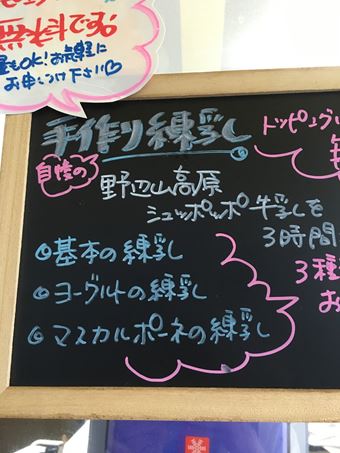 無料です
量もOK!お気軽に
お申しつけ下さい
手作り練乳
トッピング
自慢の
野辺山高原
シュッポッポ牛乳を
3時間
3種
お
基本の練乳
ヨーグルトの練乳
マスカルポーネの練乳